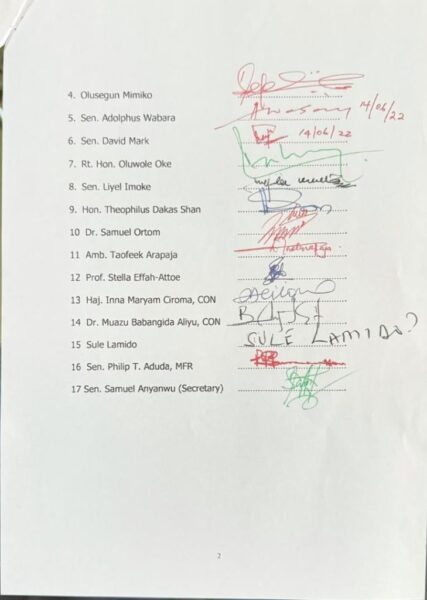 4. Olusegun Mimiko
5. Sen. Adolphus Wabara 14/06/22
6. Sen. David Mark 14/06/22
7. Rt. Hon. Oluwole Oke
8. Sen. Liyel Imoke
9. Hon. Theophilus Dakas Shan
10 Dr. Samuel Ortom
11 Amb. Taofeek Arapaja
12 Prof. Stella Effah-Attoe
13 Haj. Inna Maryam Ciroma, CON
14 Dr. Muazu Babangida Aliyu, CON
15 Sule Lamido SULE LAMIDO
16 Sen. Philip T. Aduda, MFR
17 Sen. Samuel Anyanwu (Secretary)
2